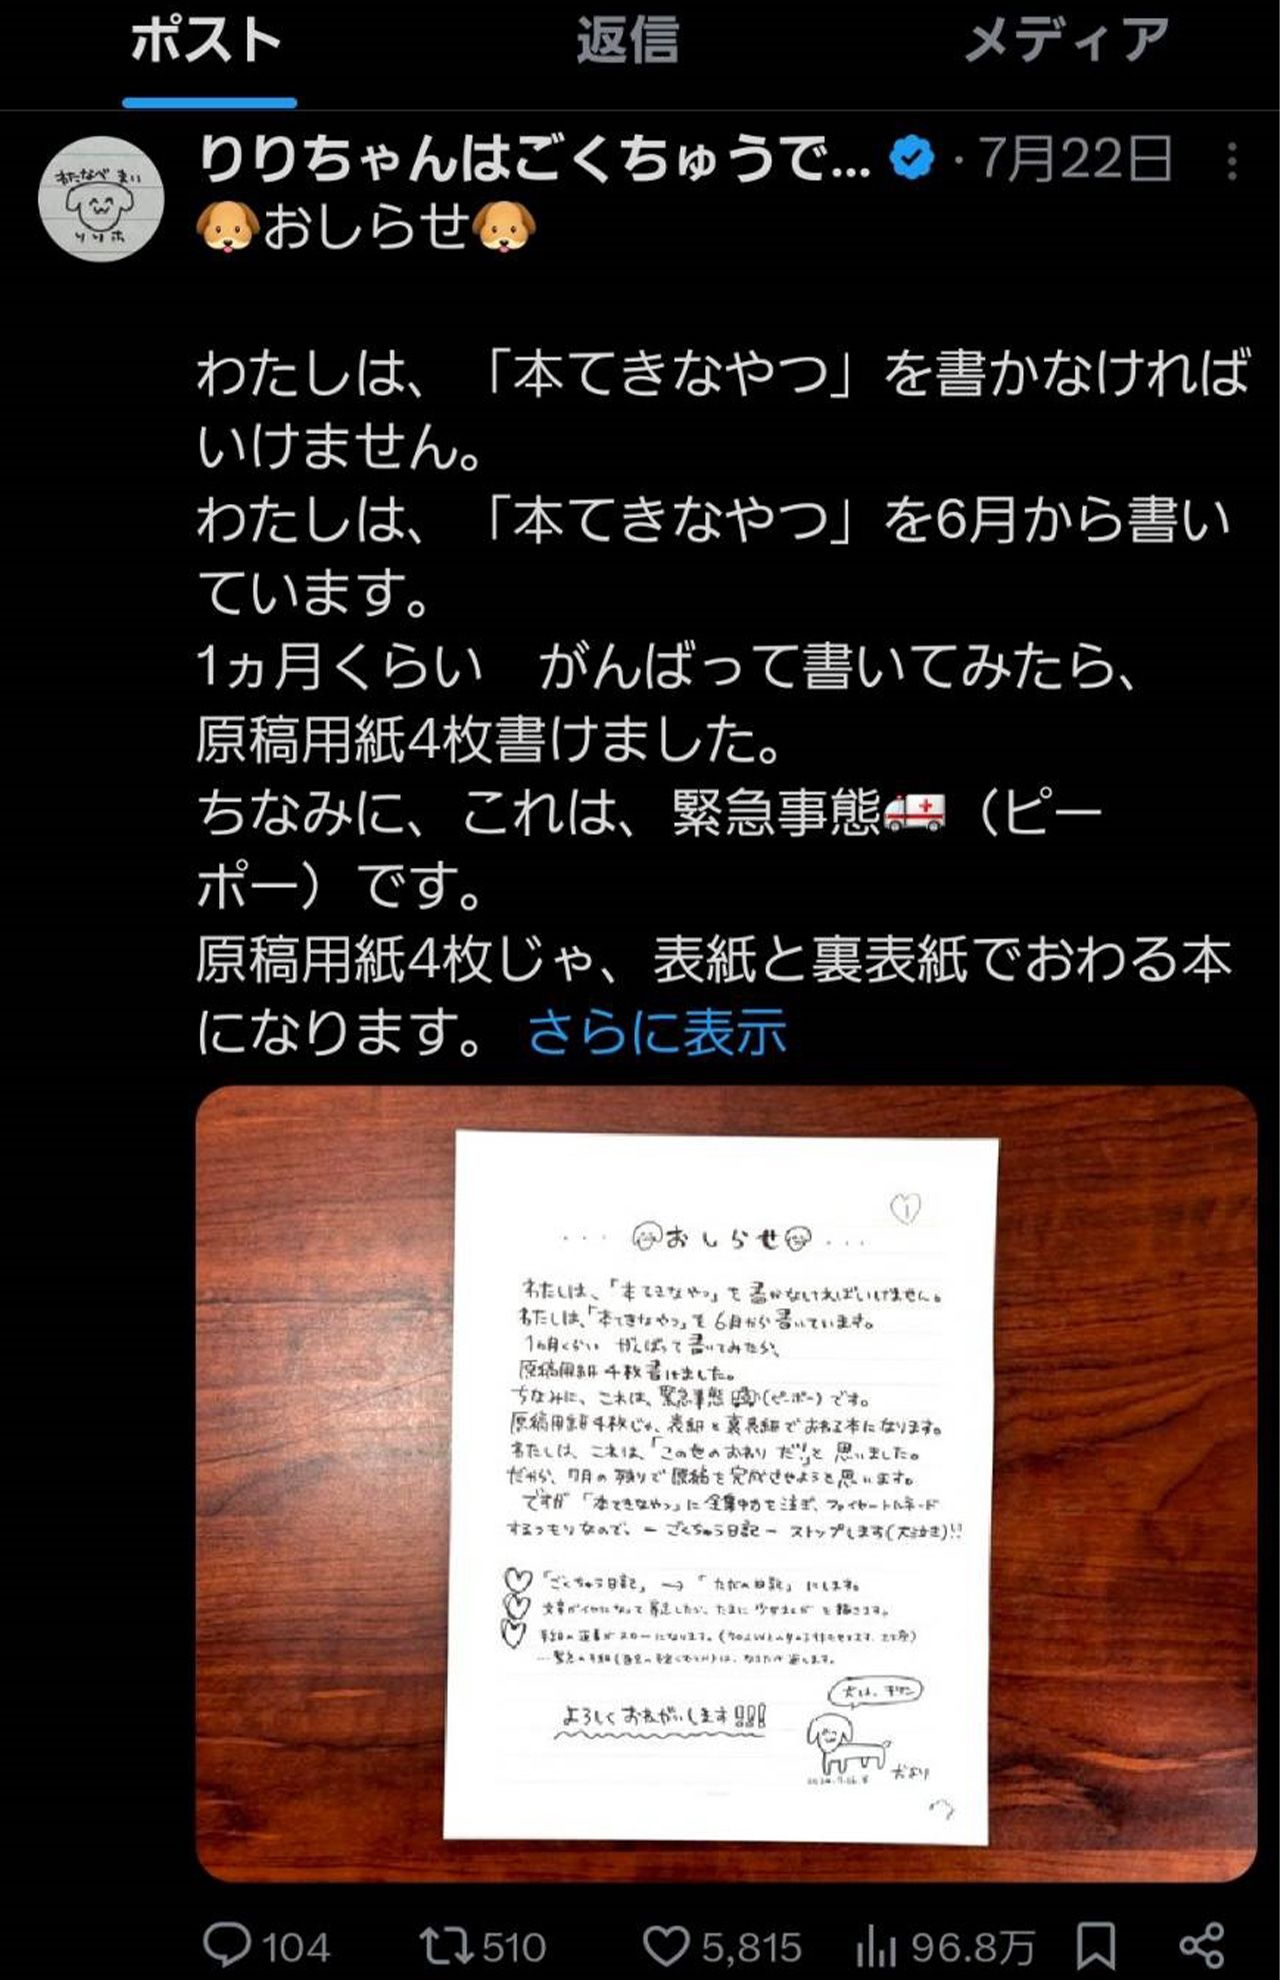 ポスト 返信 メディア
わたなべ まい
りりちゃんはごくちゅうで... ・7月22日
🐶おしらせ🐶
わたしは、「本てきなやつ」を書かなければ
いけません。
わたしは、「本てきなやつ」を6月から書い
ています。
1ヵ月くらい　がんばって書いてみたら、
原稿用紙4枚書けました。
ちなみに、これは、緊急事態🚑（ピー
ポー）です。
原稿用紙4枚じゃ、表紙と裏表紙でおわる本
になります。 さらに表示
1
・・・おしらせ・・・
わたしは、「本てきなやつ」を書かなければいけません。
わたしは、「本てきなやつ」を6月から書いています。
1ヵ月くらい がんばって書いてみたら、
原稿用紙4枚書けました。
ちなみに、これは、緊急事態(ピーポー)です。
原稿用紙4枚じゃ、表紙と裏表紙でおわる本になります。
わたしは、これは、「この世のおわりだ!!」と思いました。
だから、7月の残りで原稿を完成させようと思います。
ですが「本てきなやつ」に全集中力を注ぎ、ファイヤートルネード
するつもりなので、ーごくちゅう日記ーストップします(大泣き)!!
「ごくちゅう日記」→「ただの日記」にします。
文章がイヤになって暴走したら、たまに少女まんがを描きます。
手紙の返事がスローになります。
よろしくおねがいします!!!
犬より
104 510 5,815 96.8万